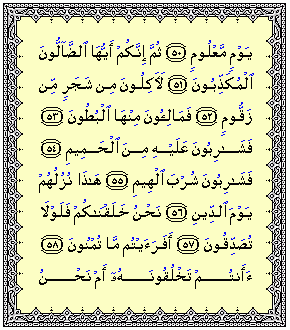 يَوْمٍ مَّعْلُومٍ ٥٠ ثُمَّ إِنَّكُمْ أَيُّهَا ٱلضَّآلُّونَ
ٱلْمُكَذِّبُونَ ٥١ لَـَٔاكِلُونَ مِن شَجَرٍ مِّن
زَقُّومٍ ٥٢ فَمَالِـُٔونَ مِنْهَا ٱلْبُطُونَ ٥٣
فَشَـٰرِبُونَ عَلَيْهِ مِنَ ٱلْحَمِيمِ ٥٤
فَشَـٰرِبُونَ شُرْبَ ٱلْهِيمِ ٥٥ هَـٰذَا نُزُلُهُمْ
يَوْمَ ٱلدِّينِ ٥٦ نَحْنُ خَلَقْنَـٰكُمْ فَلَوْلَا
تُصَدِّقُونَ ٥٧ أَفَرَءَيْتُم مَّا تُمْنُونَ ٥٨
ءَأَنتُمْ تَخْلُقُونَهُۥٓ أَمْ نَحْنُ